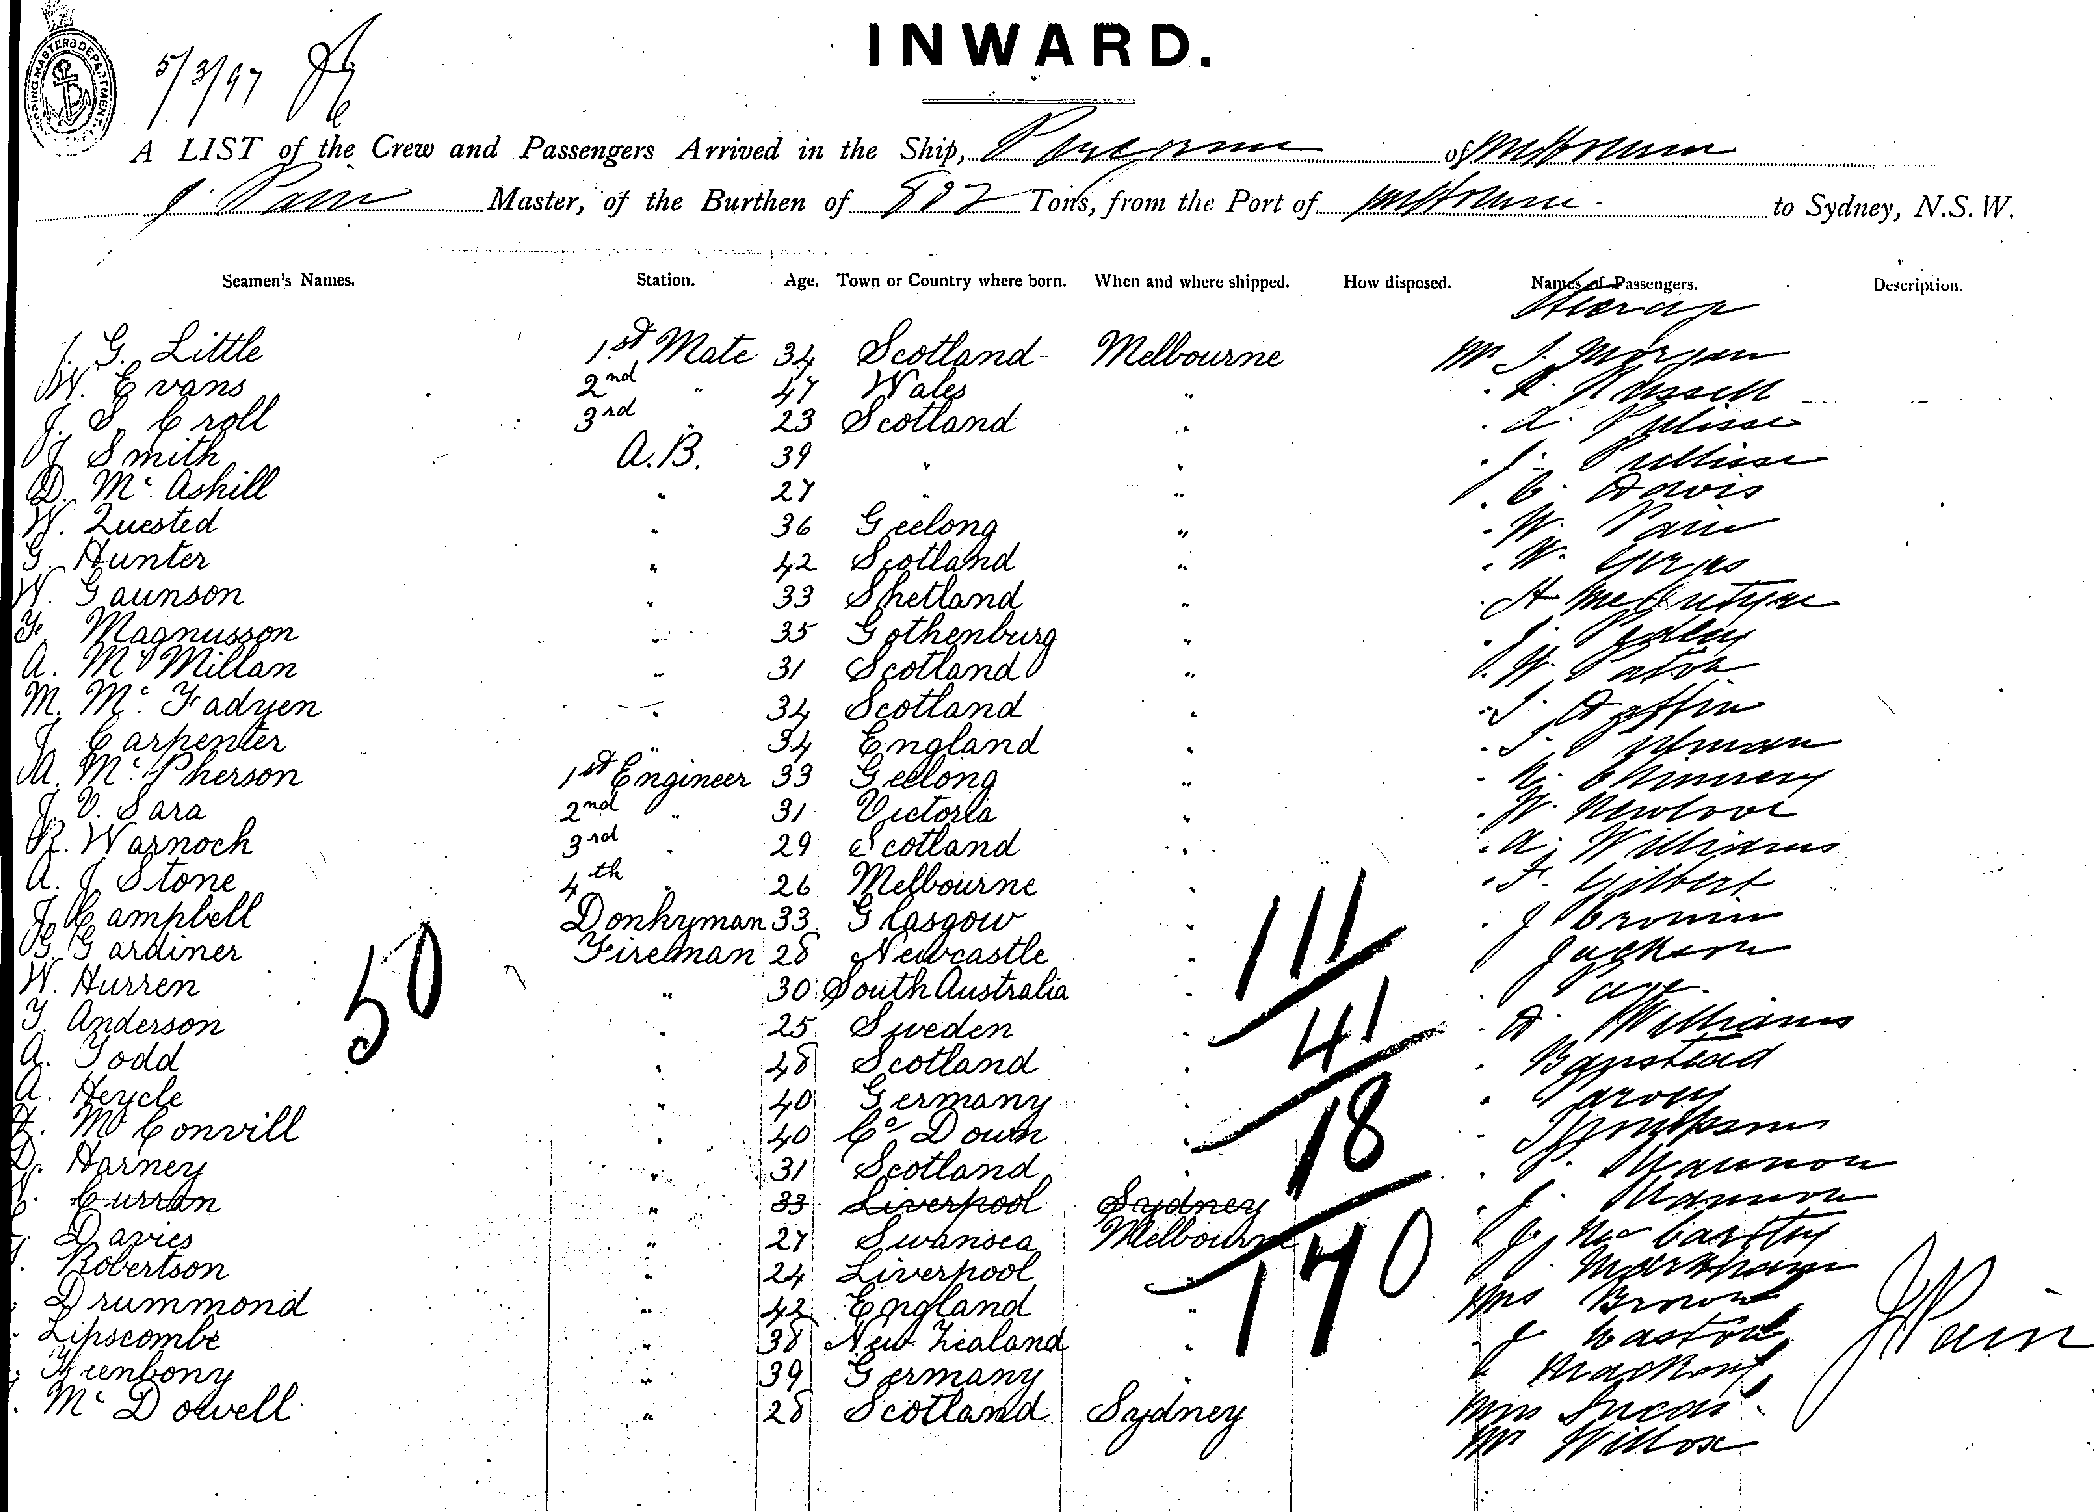 INWARD.
5/3/97
A LIST of the Crew and Passengers Arrived in the Ship, of Melbourne
J. Pain Master, of the Burthen of Tons, from the Port of Melbourne to Sydney, N.S.W.
Seamen's Names. Station. Age. Town or Country where born. When and where shipped. How disposed. Names of Passengers. Description.
Steerage
J. G. Little 1st Mate 34 Scotland Melbourne Mr J. Morgan
W. Evans 2nd " 47 Wales " " Russell
J. S. Croll 3rd " 23 Scotland "
J Smith A.B. 39 " "
D. Mc Askill " 27 " " " C. Davis
W. Quested " 36 Geelong " " W. Pain
G Hunter " 42 Scotland " " W.
W. Gaunson " 33 Shetland " " A McIntyre
F. Magnusson " 35 Gothenburg "
A. Mc Millan " 31 Scotland " " W. Paton
M. Mc Fadyen " 34 Scotland "
J Carpenter " 34 England "
A. Mc Pherson 1st Engineer 33 Geelong "
J V. Sara 2nd " 31 Victoria " " W. Newlove
R. Warnoch 3rd " 29 Scotland " " A. Williams
A. J Stone 4th " 26 Melbourne " " F. Gilbert
J Campbell Donkyman 33 Glasgow " " J Cronin
G. Gardiner Fireman 28 Newcastle " " Jackson
W. Hurren " 30 South Australia "
T Anderson " 25 Sweden " " Williams
A. Todd " 48 Scotland " " Banstead
A. Heycle " 40 Germany "
Mc Convill " 40 Co Down " " Thompson
D. Harney " 31 Scotland " " Hannon
Curran " 33 Liverpool Sydney " J. Hannon
Davies " 27 Swansea Melbourne " J. McCarthy
Robertson " 24 Liverpool " " Markham
Drummond " 42 England " Mrs Brown
Lipscombe " 38 New Zealand "
" 39 Germany "
Mc Dowell " 28 Scotland Sydney Miss Lucas
Mr Willox
50
111
41
18
170
J Pain